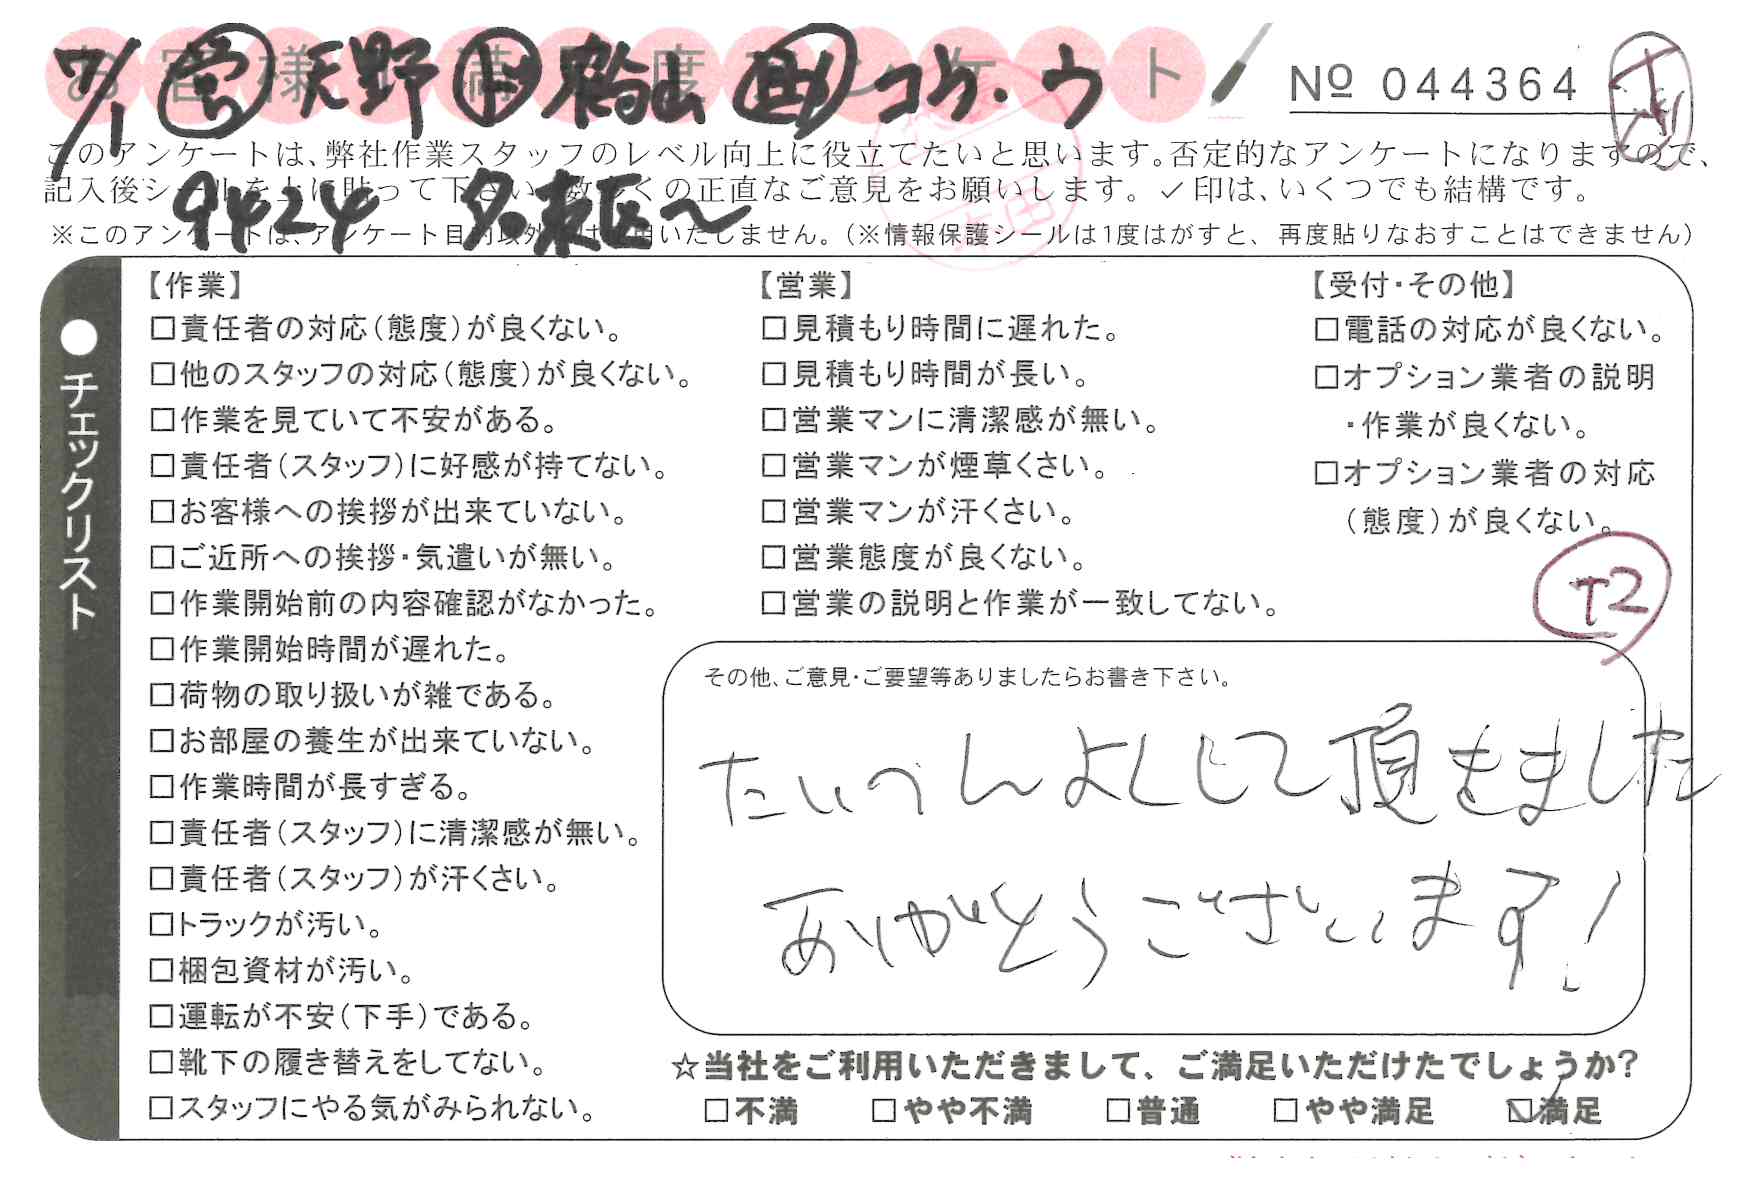 お客様満足度アンケート
7/1 営 天野 作 輪島 助 コウ・ウ
№ 044364
このアンケートは、弊社作業スタッフのレベル向上に役立てたいと思います。否定的なアンケートになりますので、
記入後シールを上に貼って下さい。数多くの正直なご意見をお願いします。✓印は、いくつでも結構です。
9424 名東区〜
※このアンケートは、アンケート目的以外には使用いたしません。（※情報保護シールは1度はがすと、再度貼りなおすことはできません）
●チェックリスト
【作業】
□責任者の対応（態度）が良くない。
□他のスタッフの対応（態度）が良くない。
□作業を見ていて不安がある。
□責任者（スタッフ）に好感が持てない。
□お客様への挨拶が出来ていない。
□ご近所への挨拶・気遣いが無い。
□作業開始前の内容確認がなかった。
□作業開始時間が遅れた。
□荷物の取り扱いが雑である。
□お部屋の養生が出来ていない。
□作業時間が長すぎる。
□責任者（スタッフ）に清潔感が無い。
□責任者（スタッフ）が汗くさい。
□トラックが汚い。
□梱包資材が汚い。
□運転が不安（下手）である。
□靴下の履き替えをしてない。
□スタッフにやる気がみられない。
【営業】
□見積もり時間に遅れた。
□見積もり時間が長い。
□営業マンに清潔感が無い。
□営業マンが煙草くさい。
□営業マンが汗くさい。
□営業態度が良くない。
□営業の説明と作業が一致してない。
【受付・その他】
□電話の対応が良くない。
□オプション業者の説明
・作業が良くない。
□オプション業者の対応
（態度）が良くない。
T2
その他、ご意見・ご要望等ありましたらお書き下さい。
たいへんよくして頂きました
ありがとうございます!
☆当社をご利用いただきまして、ご満足いただけたでしょうか?
□不満 □やや不満 □普通 □やや満足 ☑満足